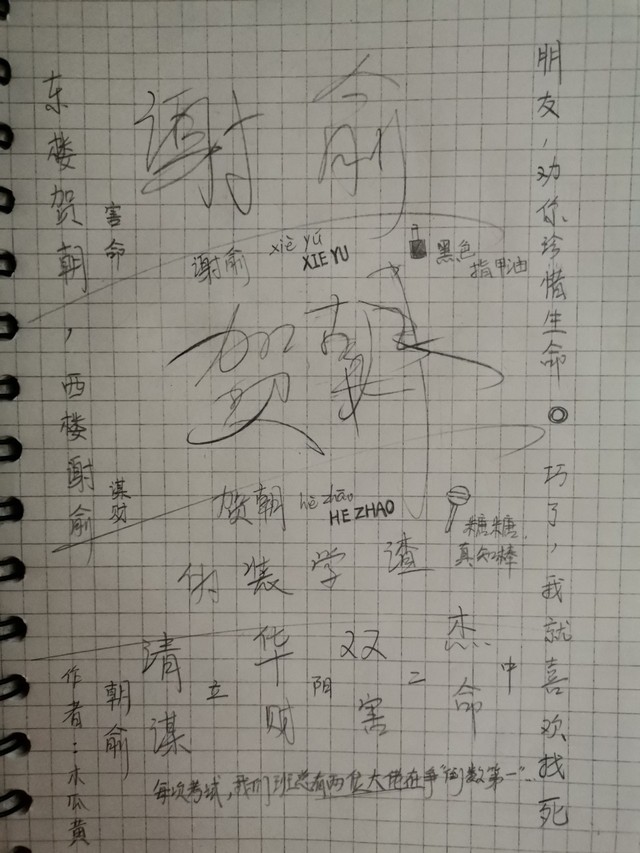 东楼贺朝，西楼谢俞
害命
谋财
谢俞
谢俞
xiè yú
XIE YU
黑色
指甲油
贺朝
贺朝
hè zhāo
HE ZHAO
糖糖
真知棒
伪装学渣
清华双杰
立阳二中
谋财害命
朝俞
作者：木瓜黄
每次考试，我们班总有两位大佬在争“倒数第一”...
朋友，劝你珍惜生命。巧了，我就喜欢找死